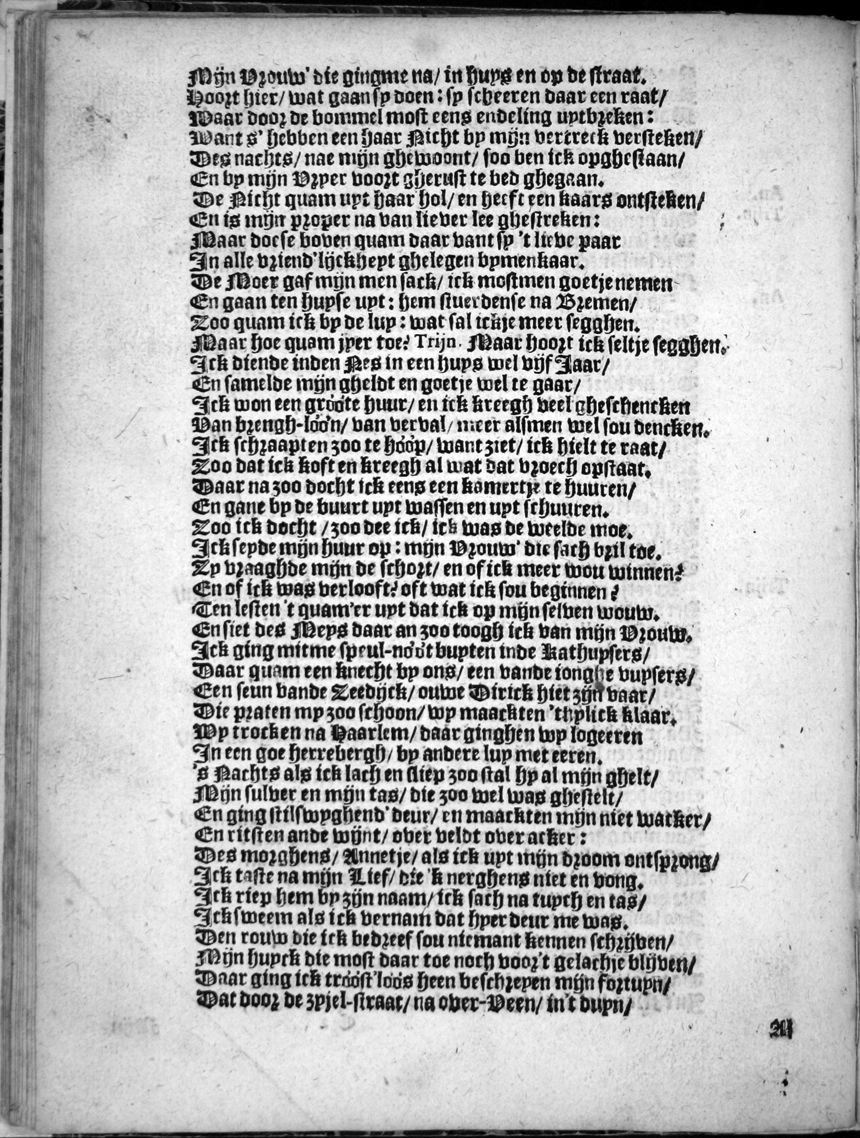 Mijn Vrouw' die gingme na/ in huys en op de straat.
Hoort hier/ wat gaan sy doen: sy scheeren daar een raat/
Waar door de bommel most eens endeling uytbreken:
Want s' hebben een haar Nicht by mijn vertreck versteken/
Des nachts/ nae mijn ghewoont/ soo ben ick opghestaan/
En by mijn Vryer voort gherust te bed ghegaan.
De Nicht quam uyt haar hol/ en heeft een kaars ontsteken/
En is mijn proper na van liever lee ghestreken:
Maar doese boven quam daar vant sy 't lieve paar
In alle vriend'lijckheyt ghelegen bymenkaar.
De Moer gaf mijn men sack/ ick mostmen goetje nemen
En gaan ten huyse uyt: hem stuerdense na Bremen/
Zoo quam ick by de luy: wat sal ickje meer segghen.
Maar hoe quam jyer toe? Trijn. Maar hoort ick seltje segghen.
Ick diende inden Nes in een huys wel vijf Jaar/
En samelde mijn gheldt en goetje wel te gaar/
Ick won een gróóte huur/ en ick kreegh veel gheschencken
Van brengh-lóón/ van verval/ meer alsmen wel sou dencken.
Ick schraapten zoo te hóóp/ want ziet/ ick hielt te raat/
Zoo dat ick koft en kreegh al wat dat vroech opstaat.
Daar na zoo docht ick eens een kamertje te huuren/
En gane by de buurt uyt wassen en uyt schuuren.
Zoo ick docht / zoo dee ick/ ick was de weelde moe.
Ick seyde mijn huur op: mijn Vrouw' die sach bril toe.
Zy vraaghde mijn de schort/ en of ick meer wou winnen?
En of ick was verlooft? oft wat ick sou beginnen?
Ten lesten 't quam'er uyt dat ick op mijn selven wouw.
En siet des Meys daar an zoo toogh ick van mijn Vrouw.
Ick ging mitme speul-nóót buyten inde Kathuysers/
Daar quam een knecht by ons/ een vande ionghe vuysers/
Een seun vande Zeedijck/ ouwe Dirick hiet zijn vaar/
Die praten my zoo schoon/ wy maackten 'thylick klaar.
Wy trocken na Haarlem/ daar ginghen wy logeeren
In een goe herrebergh/ by andere luy met eeren.
's Nachts als ick lach en sliep zoo stal hy al mijn ghelt/
Mijn sulver en mijn tas/ die zoo wel was ghestelt/
En ging stilswyghend' deur/ en maackten mijn niet wacker/
En ritsten ande wijnt/ over veldt over acker:
Des morghens/ Annetje/ als ick uyt mijn droom ontsprong/
Ick taste na mijn Lief/ die 'k nerghens niet en vong.
Ick riep hem by zijn naam/ ick sach na tuych en tas/
Ick sweem als ick vernam dat hyer deur me was.
Den rouw die ick bedreef sou niemant kennen schrijven/
Mijn huyck die most daar toe noch voor't gelachje blijven/
Daar ging ick tróóst'lóós heen beschreyen mijn fortuyn/
Dat door de zyjel-straat/ na over-Veen/ in't duyn/